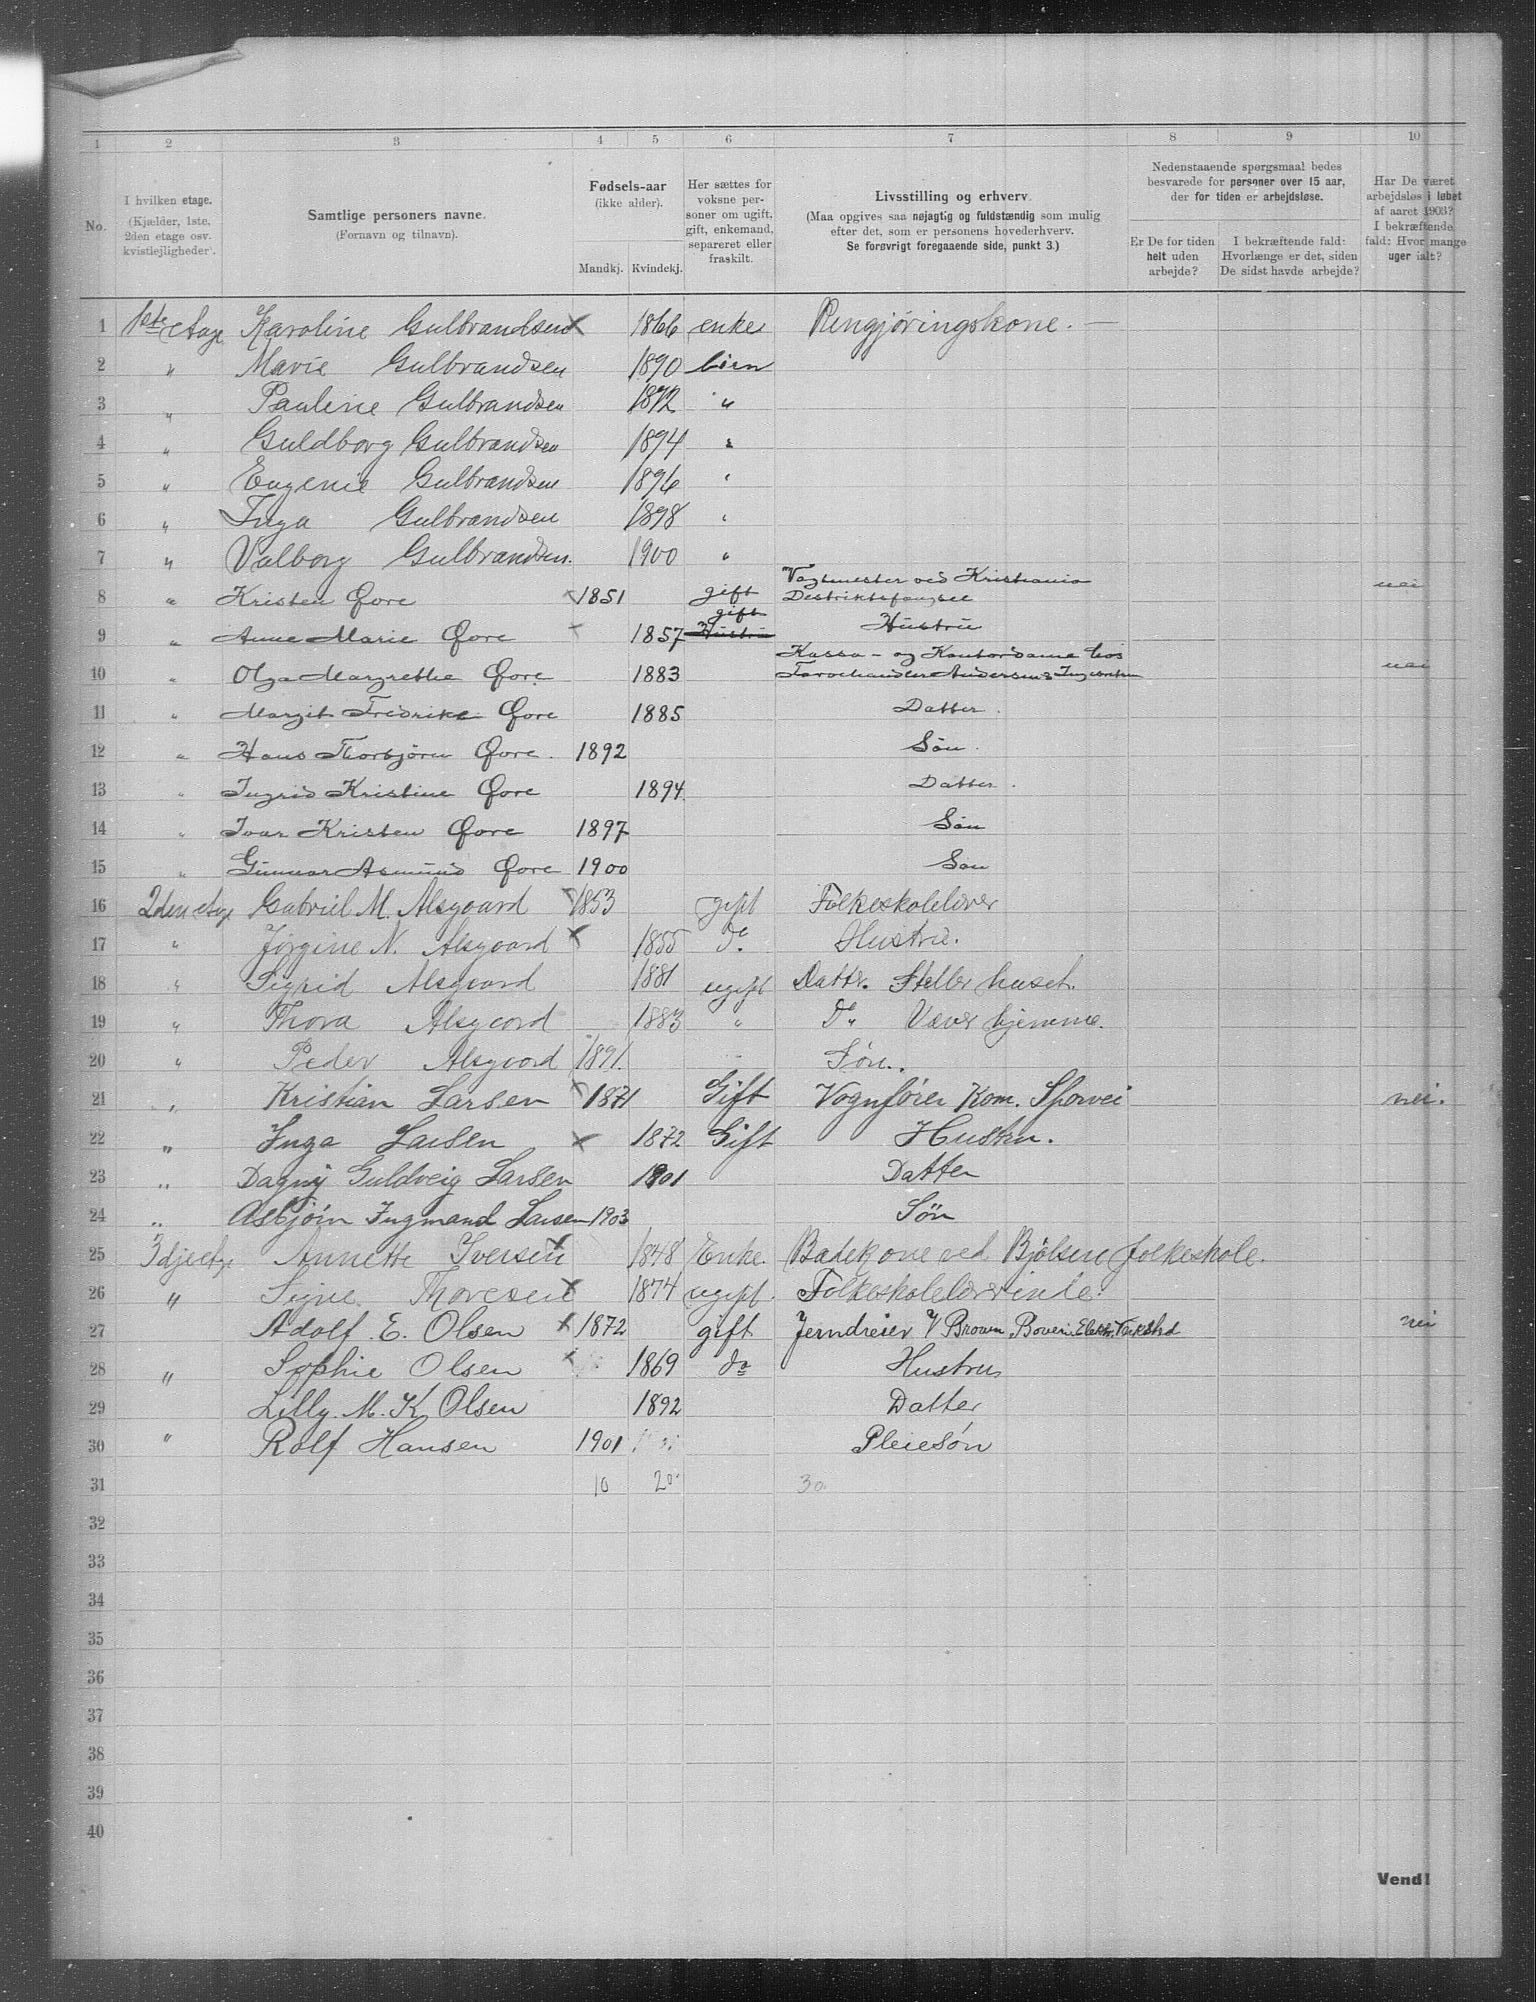 1 2 3 4 5 6 7 8 9 10
No.
I hvilken etage.
(Kjælder, 1ste,
2den etage osv.
kvistlejligheder).
Samtlige personers navne.
(Fornavn og tilnavn).
Fødsels-aar
(ikke alder).
Mandkj. Kvindekj.
Her sættes for
voksne per-
soner om ugift,
gift, enkemand,
separeret eller
fraskilt.
Livsstilling og erhverv.
(Maa opgives saa nøjagtig og fuldstændig som mulig
efter det, som er personens hovederhverv.
Se forøvrigt foregaaende side, punkt 3.)
Nedenstaaende spørgsmaal bedes
besvarede for personer over 15 aar,
der for tiden er arbejdsløse.
Er De for tiden
helt uden
arbejde?
I bekræftende fald:
Hvorlænge er det, siden
De sidst havde arbejde?
Har De været
arbejdsløs i løbet
af aaret 1903?
I bekræftende
fald: Hvor mange
uger ialt?
1 1ste etage Karoline Gulbrandsen x 1866 enke Rengjøringskone. —
2 " Marie Gulbrandsen 1890 børn
3 " Pauline Gulbrandsen 1892 "
4 " Guldborg Gulbrandsen 1894 "
5 " Eugenie Gulbrandsen 1896 "
6 " Inga Gulbrandsen 1898 "
7 " Valborg Gulbrandsen. 1900 "
8 " Kristen Øore x 1851 gift Vagtmester ved Kristiania Destriktsfængsel nei
9 " Anne Marie Øore x 1857 gift Hustru Hustru
10 " Olga Margrethe Øore 1883 Kassa- og Kontordame hos Farvehandler Andersens nei
11 " Margit Fredrike Øore 1885 Datter.
12 " Hans Thorbjörn Øore. 1892 Sön.
13 " Ingrid Kristine Øore 1894 Datter.
14 " Ivar Kristen Øore 1897 Sön
15 " Gunnar Asmund Øore 1900 Son
16 2den etage Gabriel M. Alsgaard x 1853 gift Folkeskolelærer
17 " Jørgine N. Alsgaard x 1855 do. Hustru.
18 " Sigrid Alsgaard 1881 ugift Datter. Steller huset.
19 " Thora Alsgaard 1883 " Do Væver hjemme.
20 " Peder Alsgaard 1891. Søn.
21 " Kristian Larsen x 1871 Gift Vognfører Kom. Sporvei nei.
22 " Inga Larsen x 1872 Gift Hustru.
23 " Dagny Guldveig Larsen 1901 Datter
24 " Asbjørn Ingmand Larsen 1903 Søn
25 3dje etage Annette Iversen x 1848 Enke. Badekone ved Bjølsen folkeskole.
26 " Signe Thoresen x 1874 ugift. Folkeskolelærerinde.
27 Adolf E. Olsen x 1872 gift Jerndreier V Brown, Boveri Elektr. nei
28 " Sophie Olsen x 1869 do Hustru
29 Lilly. M. K Olsen 1892 Datter
30 " Rolf Hansen 1901 Pleiesøn
31 10 20 30
32
33
34
35
36
37
38
39
40
Vend!